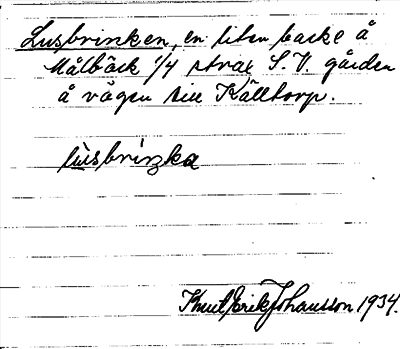 Lusbrinken, en liten backe å
Målbäck 1/4 strax S.V. gården
å vägen till Källtorp.
lùsbrinka
Knut Erik Johansson 1934.